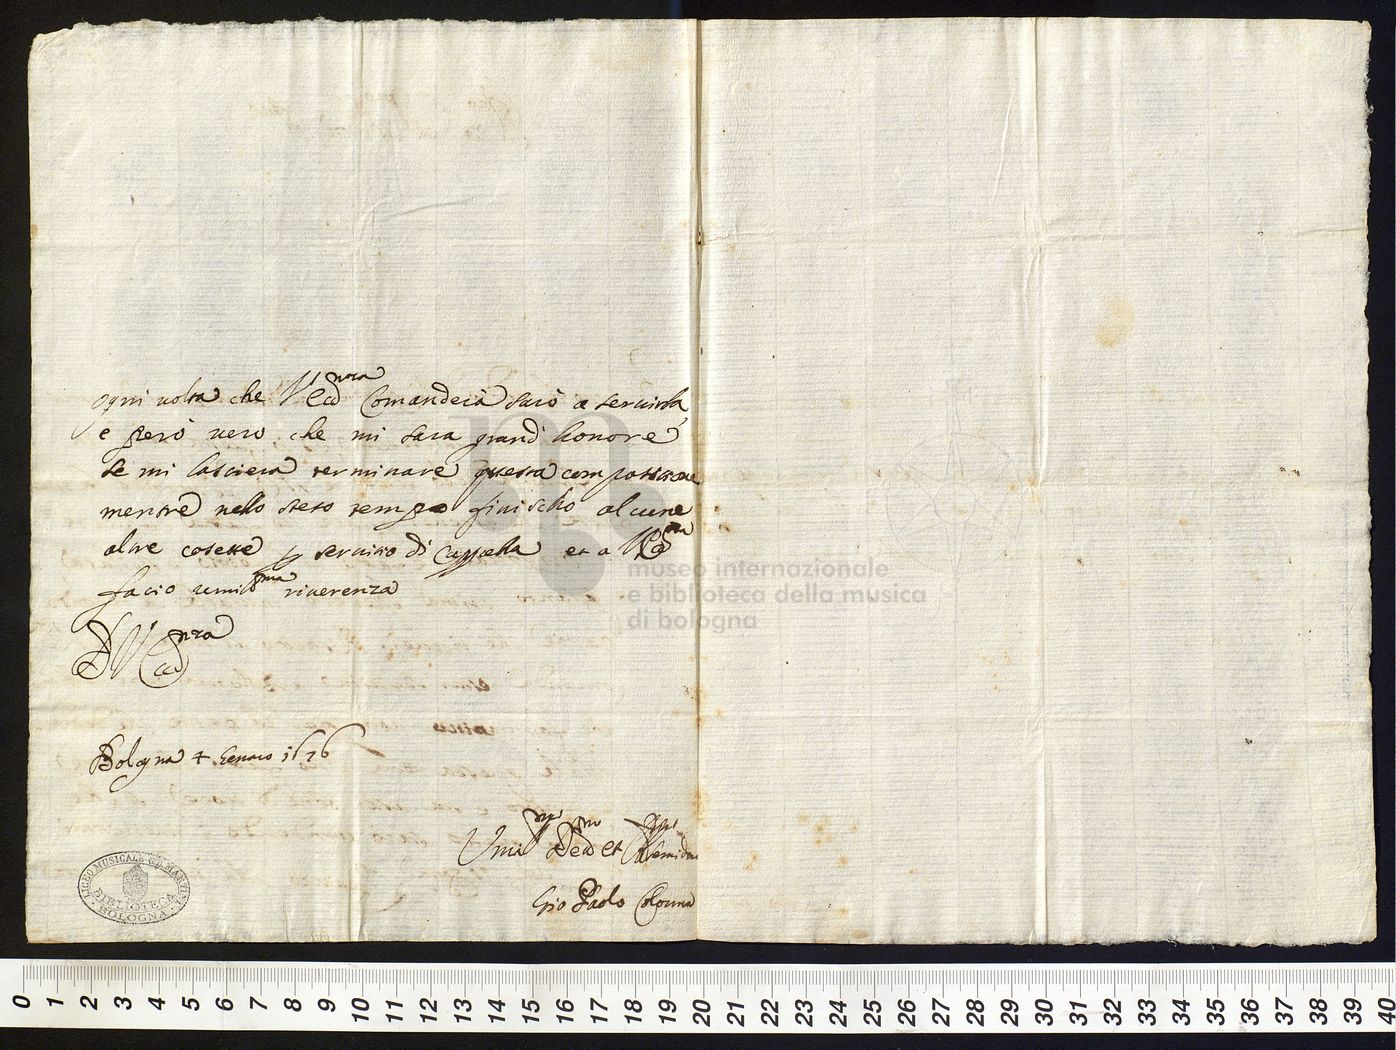 ogni uolta che V Ecc.nza Comanderà sarò a seruirla,
e però uero che mi sara grand honore
se mi lasciera terminare questa compositione
mentre nello steso tempo finischo alcune
altre cosette p seruitio di Cappella et a V Ecc.nza
facio umilis.ma riuerenza
D V Ecc.nza
Bologna 4 Genaro 1676
Gio Paolo Colonna
museo internazionale
e biblioteca della musica
di bologna
LICEO MUSICALE G.B. MARTINI
BIBLIOTECA
BOLOGNA
0 1 2 3 4 5 6 7 8 9 10 11 12 13 14 15 16 17 18 19 20 21 22 23 24 25 26 27 28 29 30 31 32 33 34 35 36 37 38 39 40